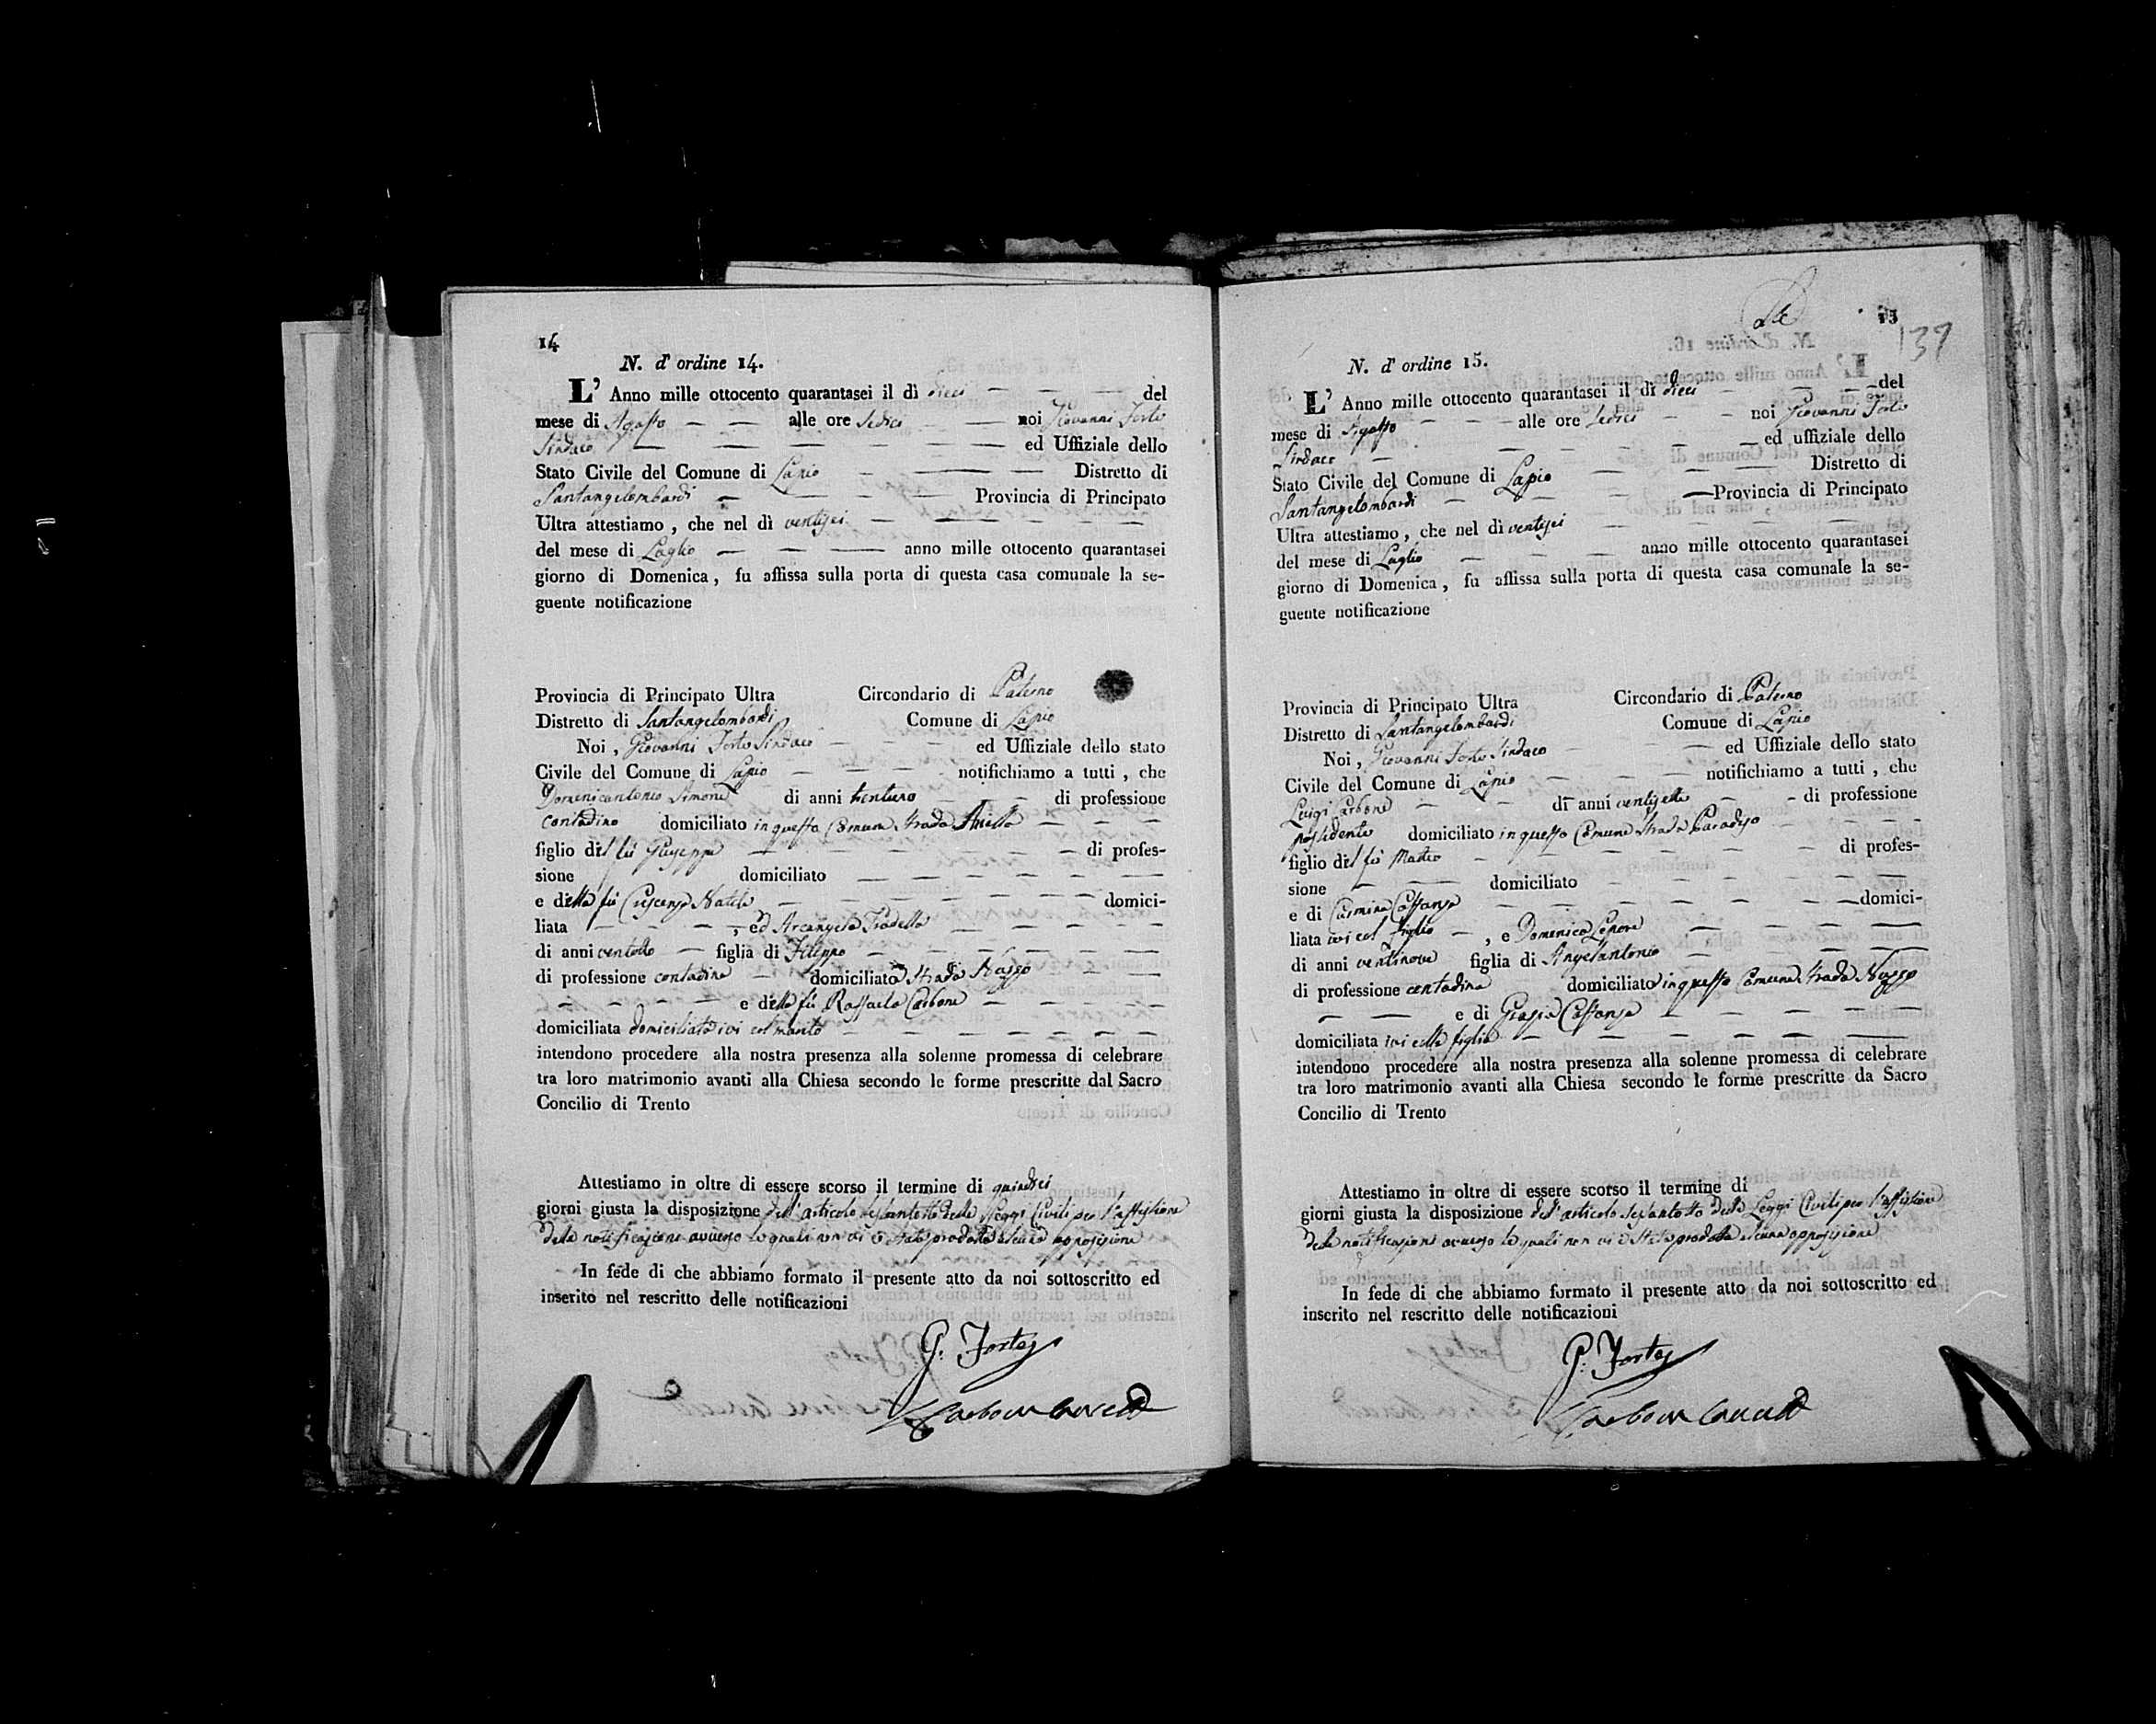 14
N. d' ordine 14.
L' Anno mille ottocento quarantasei il dì dieci — — — del
mese di Agosto — — alle ore sedici — — noi Giovanni Forte
Sindaco — — — — — ed Uffiziale dello
Stato Civile del Comune di Lapio — — — Distretto di
Santangelombardi — — — — Provincia di Principato
Ultra attestiamo, che nel dì ventisei — — — — — —
del mese di Luglio — — — anno mille ottocento quarantasei
giorno di Domenica, fu affissa sulla porta di questa casa comunale la se-
guente notificazione
Provincia di Principato Ultra Circondario di Paterno
Distretto di Santangelombardi Comune di Lapio
Noi, Giovanni Forte Sindaco — — — ed Uffiziale dello stato
Civile del Comune di Lapio — — — notifichiamo a tutti, che
Domenicantonio Simone di anni trentuno — — di professione
contadino domiciliato in questa Comune Strada — — —
figlio del fù Giuseppe — — — — — di profes-
sione domiciliato — — — — — —
e della fù Crescenza Natele — — — — — — domici-
liata — — — —, ed Arcangela — — — — —
di anni ventotto — figlia di Filippo — — — — — —
di professione contadina — domiciliata Strada — — —
— — — — — e della fù Raffaela Carbone — — — — —
domiciliata domiciliato ivi col marito — — — — — — —
intendono procedere alla nostra presenza alla solenne promessa di celebrare
tra loro matrimonio avanti alla Chiesa secondo le forme prescritte dal Sacro
Concilio di Trento
Attestiamo in oltre di essere scorso il termine di quindici
giorni giusta la disposizione dell'articolo sessantotto delle Leggi Civili per l'affissione
della notificazione avverso la quale non vi è stata prodotta alcuna opposizione
In fede di che abbiamo formato il presente atto da noi sottoscritto ed
inserito nel rescritto delle notificazioni
G. Forte
15
139
N. d' ordine 15.
L' Anno mille ottocento quarantasei il dì dieci — — — del
mese di Agosto — — — alle ore sedici — — noi Giovanni Forte
Sindaco — — — — — ed uffiziale dello
Stato Civile del Comune di Lapio — — — Distretto di
Santangelombardi — — — — — Provincia di Principato
Ultra attestiamo, che nel dì ventisei — — — — —
del mese di Luglio — — — — anno mille ottocento quarantasei
giorno di Domenica, fu affissa sulla porta di questa casa comunale la se-
guente notificazione
Provincia di Principato Ultra Circondario di Paterno
Distretto di Santangelombardi Comune di Lapio
Noi, Giovanni Forte Sindaco — — — ed Uffiziale dello stato
Civile del Comune di Lapio — — — — notifichiamo a tutti, che
Luigi Carbone — — di anni ventisette — — di professione
possidente domiciliato in questo Comune Strada Paradiso — — — —
figlio del fù Matteo — — — — — — di profes-
sione — — domiciliato — — — — — —
e di Carmina Costanza — — — — — — domici-
liata ivi col figlio —, e Domenica Lepore — — — —
di anni ventinove figlia di Angelantonio — — — —
di professione contadina domiciliata in questo Comune Strada
— — e di Grazia Costanza — — — — —
domiciliata ivi colla figlia — — — — — —
intendono procedere alla nostra presenza alla solenne promessa di celebrare
tra loro matrimonio avanti alla Chiesa secondo le forme prescritte da Sacro
Concilio di Trento
Attestiamo in oltre di essere scorso il termine di
giorni giusta la disposizione dell'articolo sessantotto delle Leggi Civili per l'affissione
della notificazione avverso la quale non vi è stata prodotta alcuna opposizione
In fede di che abbiamo formato il presente atto da noi sottoscritto ed
inscrito nel rescritto delle notificazioni
G. Forte